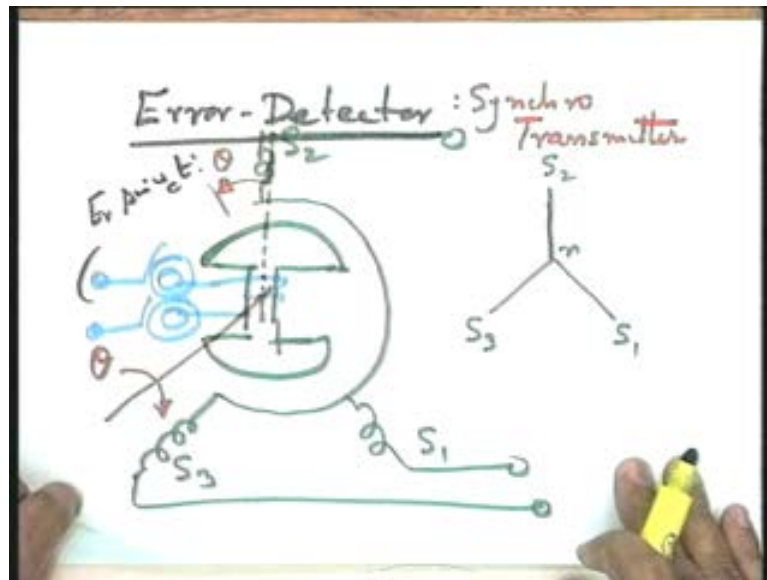 Error-Detector : Synchro
Transmitter
S2
θ
Er sin ωct
(
θ
S3
S1
S2
n
S3
S1